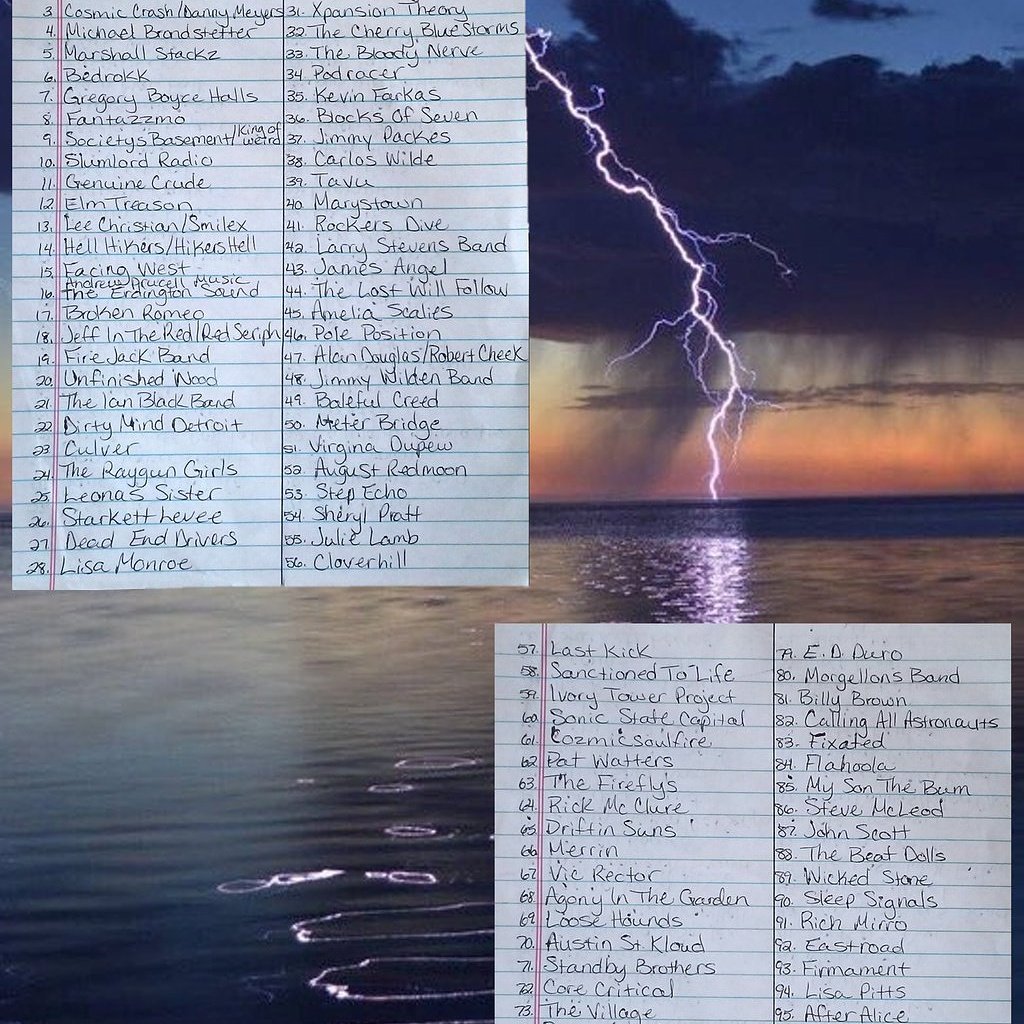 3. Cosmic Crash/Danny Meyers
4. Michael Brandstetter
5. Marshall Stackz
6. Bedrokk
7. Gregory Boyce Halls
8. Fantazzmo
9. Societys Basement/King of weird
10. Slumlord Radio
11. Genuine Crude
12. Elm Treason
13. Lee Christian/Smilex
14. Hell Hikers/Hikers Hell
15. Facing West
Andrew Music
16. The Erdington Sound
17. Broken Romeo
18. Jeff In The Red/Red Seriph
19. Fire Jack Band
20. Unfinished Wood
21. The Ian Black Band
22. Dirty Mind Detroit
23. Culver
24. The Raygun Girls
25. Leonas Sister
26. Starkett Levee
27. Dead End Drivers
28. Lisa Monroe
31. Xpansion Theory
32. The Cherry Blue Storms
33. The Bloody Nerve
34. Podracer
35. Kevin Farkas
36. Blocks Of Seven
37. Jimmy Packes
38. Carlos Wilde
39. Tavu
40. Marystown
41. Rockers Dive
42. Larry Stevens Band
43. James Angel
44. The Lost Will Follow
45. Amelia Scalies
46. Pole Position
47. Alan Douglas/Robert Cheek
48. Jimmy Wilden Band
49. Baleful Creed
50. Meter Bridge
51. Virgina Dupew
52. August Redmoon
53. Step Echo
54. Sheryl Pratt
55. Julie Lamb
56. Cloverhill
57. Last Kick
58. Sanctioned To Life
59. Ivory Tower Project
60. Sonic State Capital
61. Cozmicsoulfire
62. Pat Watters
63. The Firefly's
64. Rick Mc Clure
65. Driftin Suns
66. Merrin
67. Vic Rector
68. Agony In The Garden
69. Loose Hounds
70. Austin St Kloud
71. Standby Brothers
72. Core Critical
73. The Village
79. E.D. Duro
80. Morgellons Band
81. Billy Brown
82. Calling All Astronauts
83. Fixated
84. Flahoola
85. My Son The Bum
86. Steve McLeod
87. John Scott
88. The Beat Dolls
89. Wicked Stone
90. Sleep Signals
91. Rich Mirro
92. Eastroad
93. Firmament
94. Lisa Pitts
95. After Alice